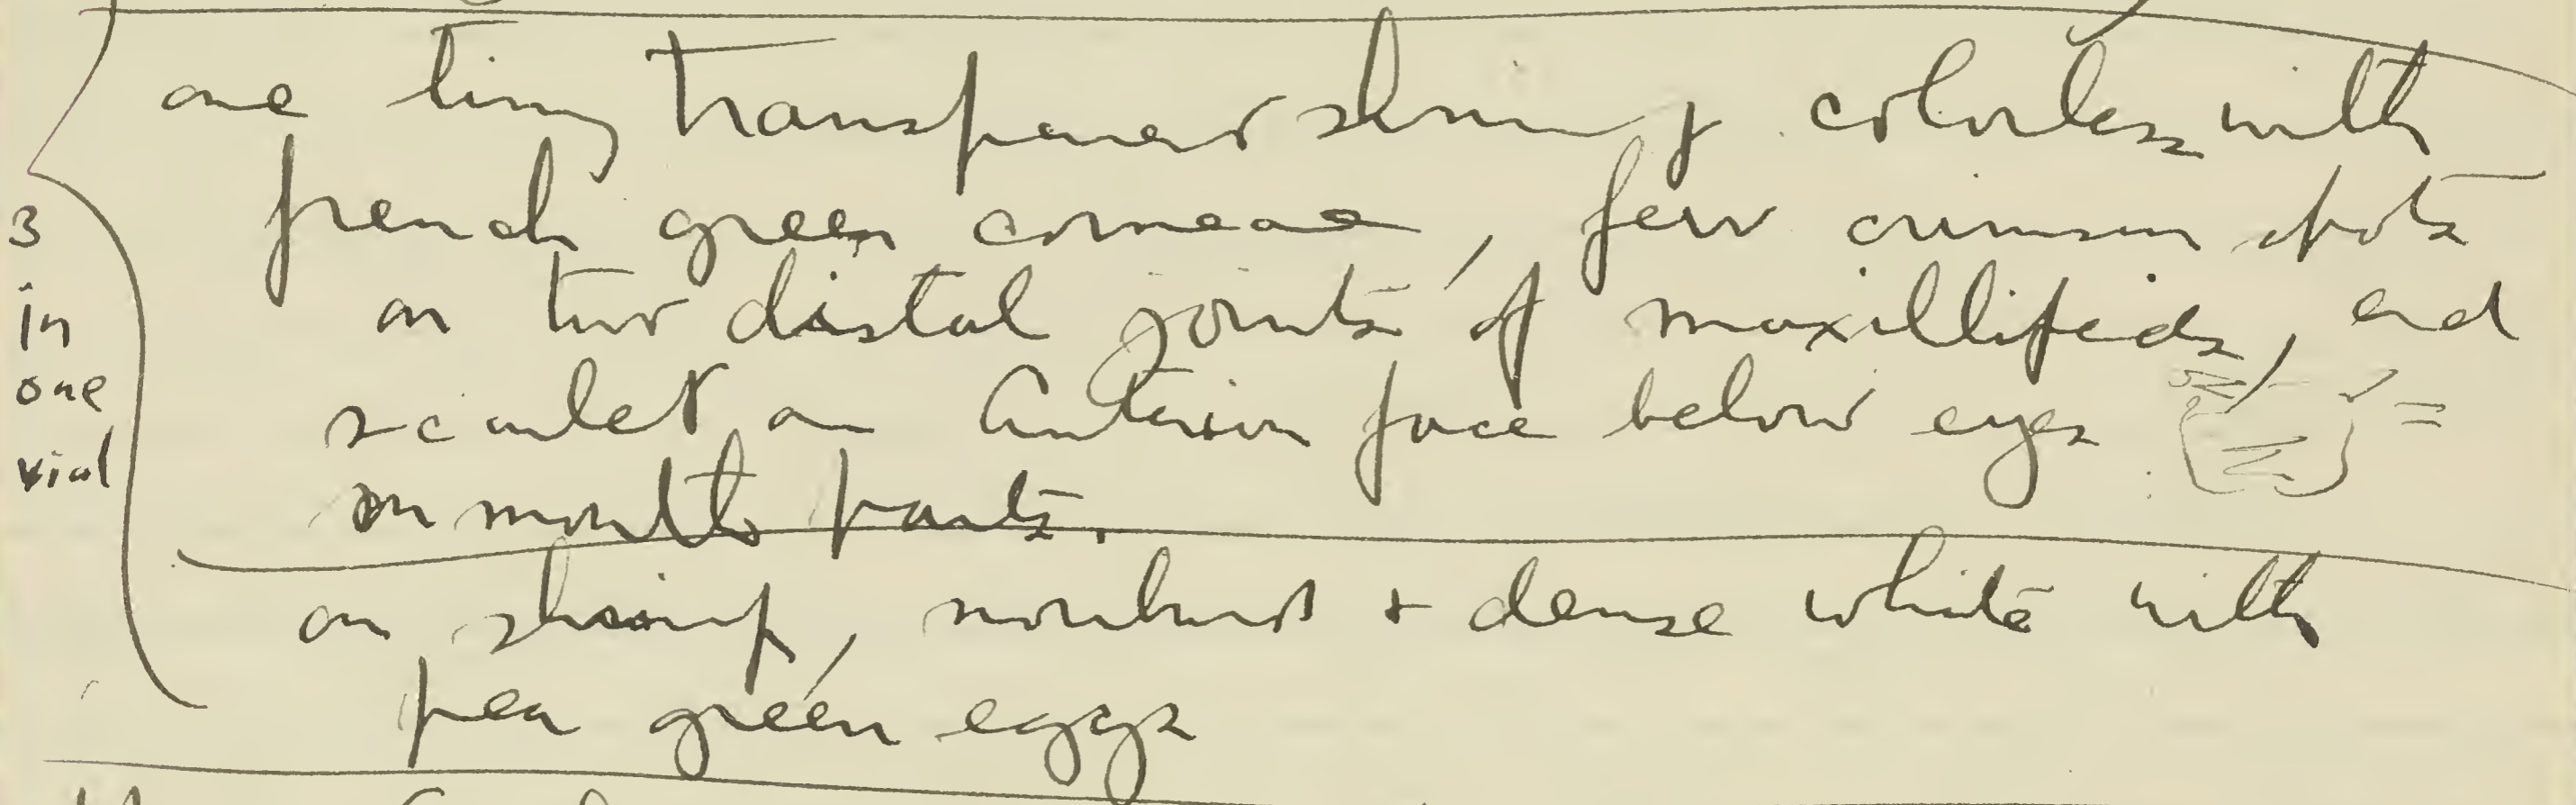 3
in
one
vial
one tiny transparent shrimp colorless with
french green corneae, few crimson spots
on two distal joints of maxillipeds, and
scarlet on anterior face below eyes =
on mouth parts.
on shrimp, + dense white with
pea green eggs